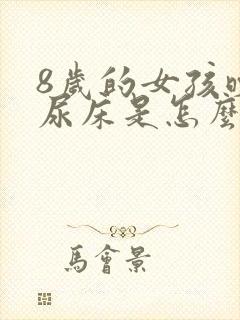 8歲的女孩
尿床是怎麼
馬會景